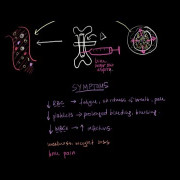 bone
marrow
aspire.
SYMPTOMS
↓ RBC → fatigue, shortness of breath, pale
↓ platelets → prolonged bleeding, bruising
↓ WBCs → ↑ infections
weakness, weight loss
bone pain